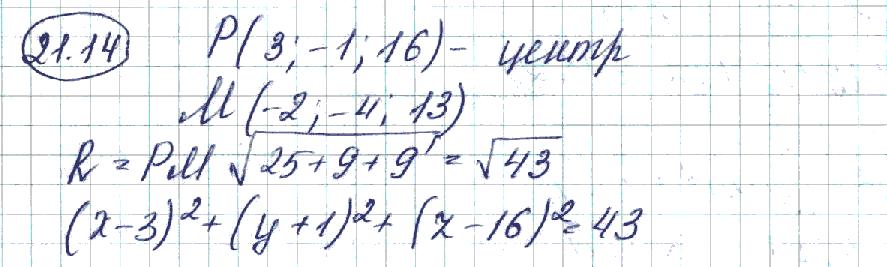 21.14 P(3; -1; 16) - центр
M(-2; -4; 13)
R = PM √25+9+9 = √43
(x-3)² + (y+1)² + (z-16)² = 43